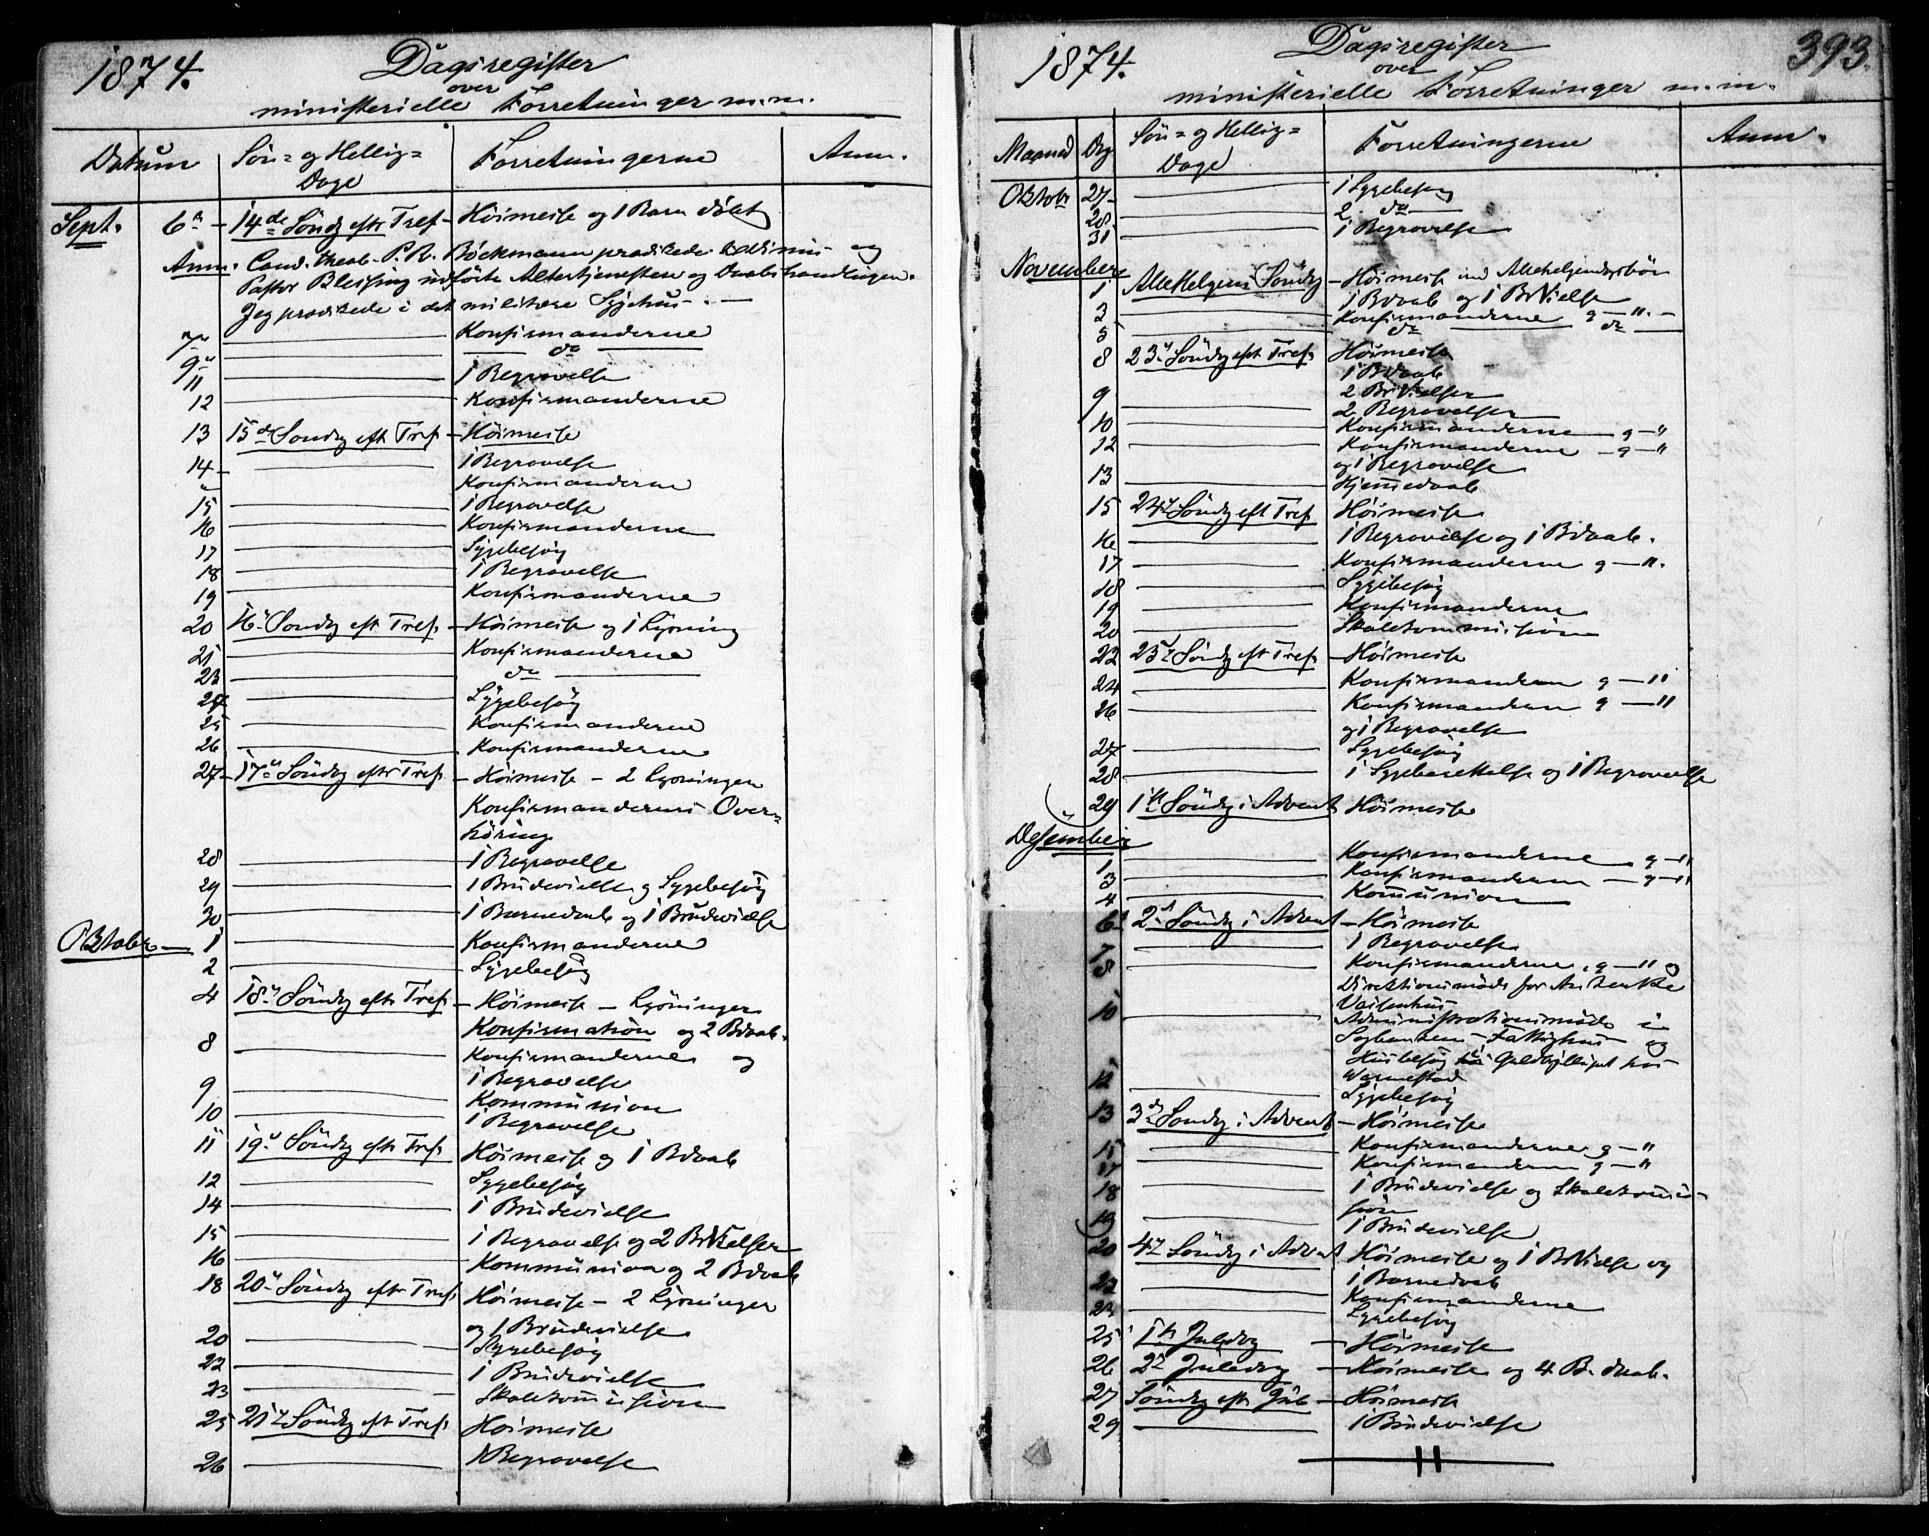 1874.
Dagsregister
over
ministerielle Forretninger m.m.
Datum
Søn= og Hellig=
Dage
Forretningerne
Anm.
Sept. 6 – 14de Söndg eftr Tref – Höimesse og 1 Barn döbt
Anm. Cand. theol. P. R. Böckmann prædikede og
Pastor Blessing udförte Altertjenesten og Daabshandlingen.
Jeg prædikede i det militære Sygehus. —
7 Konfirmanderne
9 do
11 1 Begravelse
12 Konfirmanderne
13 15de Söndg eft Tref – Höimesse
14 – 1 Begravelse
Konfirmanderne
15 1 Begravelse
16 Konfirmanderne
17 Sygebesøg
18 1 Begravelse
19 Konfirmanderne
20 16 Söndg eft Tref. – Höimesse og 1 Lysning
21 Konfirmanderne
23 do
24 Sygebesøg
25 Konfirmanderne
26 Konfirmanderne
27 – 17 Söndg eftr Tref. – Höimesse – 2 Lysninger
Konfirmandernes Over=
höring
28 1 Begravelse
29 1 Brudevielse og Sygebesøg
30 1 Barnedaab og 1 Brudevielse
Oktober – 1 Konfirmanderne
2 Sygebesøg
4 18 Söndg eftr Tref – Höimesse – Lysninger
Konfirmation og 2 Bdaab.
8 Konfirmanderne og
1 Begravelse
9 Kommunion
10 1 Begravelse
11 19 Söndg eftr Tref. Höimesse og 1 Bdaab
12 Sygebesøg
14 1 Brudevielse
15 1 Begravelse og 2 BrVielser
16 Kommunion og 2 Bdaab
18 20 Söndg eftr Tref. Höimesse – 2 Lysninger
og 1 Brudevielse
20 Sygebesøg
22 1 Brudevielse
23 Skolekommission
25 21 Söndg eft Tref. Höimesse
26 1 Begravelse
1874.
Dagsregister
over
ministerielle Forretninger m.m.
393.
Maaned
Dag
Søn= og Hellig=
Dage
Forretningerne
Anm.
Oktobr 27 – 1 Sygebesøg
28 2 do
31 1 Begravelse
November
1 Allehelgens Söndg – Höimesse med Allehelgensbøn
1 Bdaab og 1 BrVielse
3 Konfirmanderne g – " –
5 do do
8 23 Söndg eft Tref. Höimesse
1 Bdaab
2 BrVielser
9 2 Begravelser
10 Konfirmanderne g – "
12 Konfirmanderne – g – "
og 1 Begravelse
13 Hjemmedaab
15 24 Söndg eft Tref Höimesse
16 1 Begravelse og 1 Bdaab.
17 Konfirmanderne g – ".
18 Sygebesøg
19 Konfirmanderne
20 Skolekommission
22 25 Söndg eft Tref. – Höimesse
24 Konfirmanderne g – "
26 Konfirmanderne g – "
og 1 Begravelse
27 Sygebesøg
28 1 Sygeberettelse og 1 Begravelse
29 1ste Söndg i Advent Höimesse
Desember
1 Konfirmanderne g – "
3 Konfirmanderne – g – "
4 Kommunion
6 2 Söndg i Advent – Höimesse
7 1 Begravelse
8 Konfirmanderne, g – " og
Direktionsmøde for Asylet
Vaisenhus
10 Administrationsmøde i
Fattighus og
Husbesøg hos
12 Sygebesøg
13 3die Söndg i Advent – Höimesse
15 Konfirmanderne g – "
17 Konfirmanderne g – "
18 1 Brudevielse og Skolekommis=
sion
19 1 Brudevielse
20 4 Söndg i Advent Höimesse og 1 BrVielse og
1 Barnedaab
22 Konfirmanderne
23 Sygebesøg
25 1ste Juledag – Höimesse
26 2 Juledag – Höimesse og 4 B. daab.
27 Söndg eftr Jul – Höimesse
29 1 Brudevielse